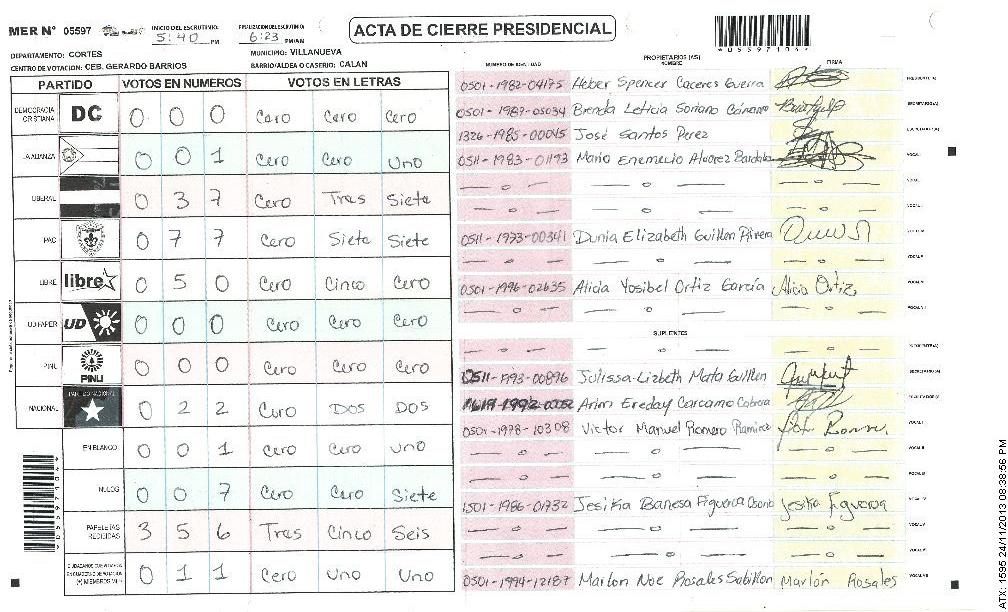 MER Nº 05597
INICIO DEL ESCRUTINIO: 5:40 PM
FINALIZACION DEL ESCRUTINIO: 6:23 PM/AM
ACTA DE CIERRE PRESIDENCIAL
DEPARTAMENTO: CORTES
MUNICIPIO: VILLANUEVA
CENTRO DE VOTACION: CEB. GERARDO BARRIOS
BARRIO/ALDEA O CASERIO: CALAN
PARTIDO VOTOS EN NUMEROS VOTOS EN LETRAS
DEMOCRACIA CRISTIANA DC 0 0 0 Cero Cero Cero
LA ALIANZA 0 0 1 Cero Cero Uno
LIBERAL 0 3 7 Cero Tres Siete
PAC 0 7 7 Cero Siete Siete
LIBRE libre 0 5 0 Cero Cinco Cero
UD FAPER UD 0 0 0 Cero Cero Cero
PINU PINU 0 0 0 Cero Cero Cero
NACIONAL PARTIDO NACIONAL 0 2 2 Cero DOS DOS
EN BLANCO 0 0 1 Cero Cero uno
NULOS 0 0 7 Cero Cero Siete
PAPELETAS RECIBIDAS 3 5 6 Tres Cinco Seis
0 1 1 Cero Uno Uno
PROPIETARIOS (AS)
NUMERO DE IDENTIDAD NOMBRE FIRMA
0501-1982-04175 Heber Spencer Caceres Guerra PRESIDENTE(A)
0501-1987-05034 Brenda Leticia Soriano SECRETARIO(A)
1326-1985-00045 José Santos Perez
0511-1983-01193 Mario Enemecio Alvarez VOCAL I
0511-1973-00341 Dunia Elizabeth Guillen Rivera
0501-1996-02635 Alicia Yosibel Ortiz García Alicia Ortiz
SUPLENTES
0511-1993-00896 Julissa Lizbeth Mata Guillen
Arim Ereday Carcamo Cabrera
0501-1978-10308 Victor Manuel Romero Ramirez
1501-1986-01732 Jesika Banesa Figueroa Jesika Figueroa
0501-1994-12187 Marlon Noe Rosales Sabillon Marlón Rosales
ATX: 1595 24/11/2013 08:38:56 PM